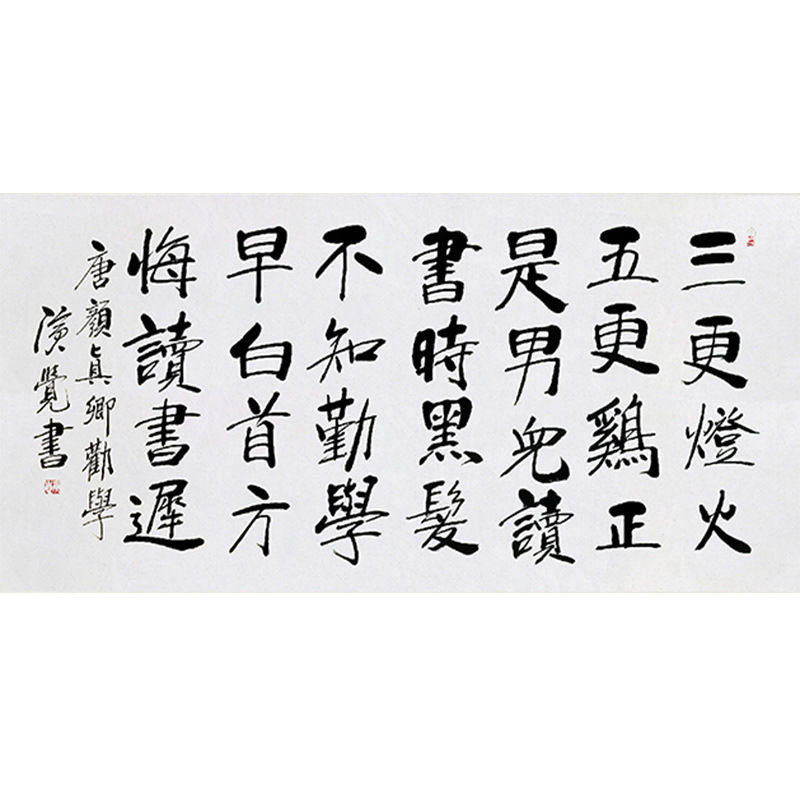 三更燈火
五更鷄正
是男兒讀
書時黑髮
不知勤學
早白首方
悔讀書遲
唐顔真卿勸學
演覺書